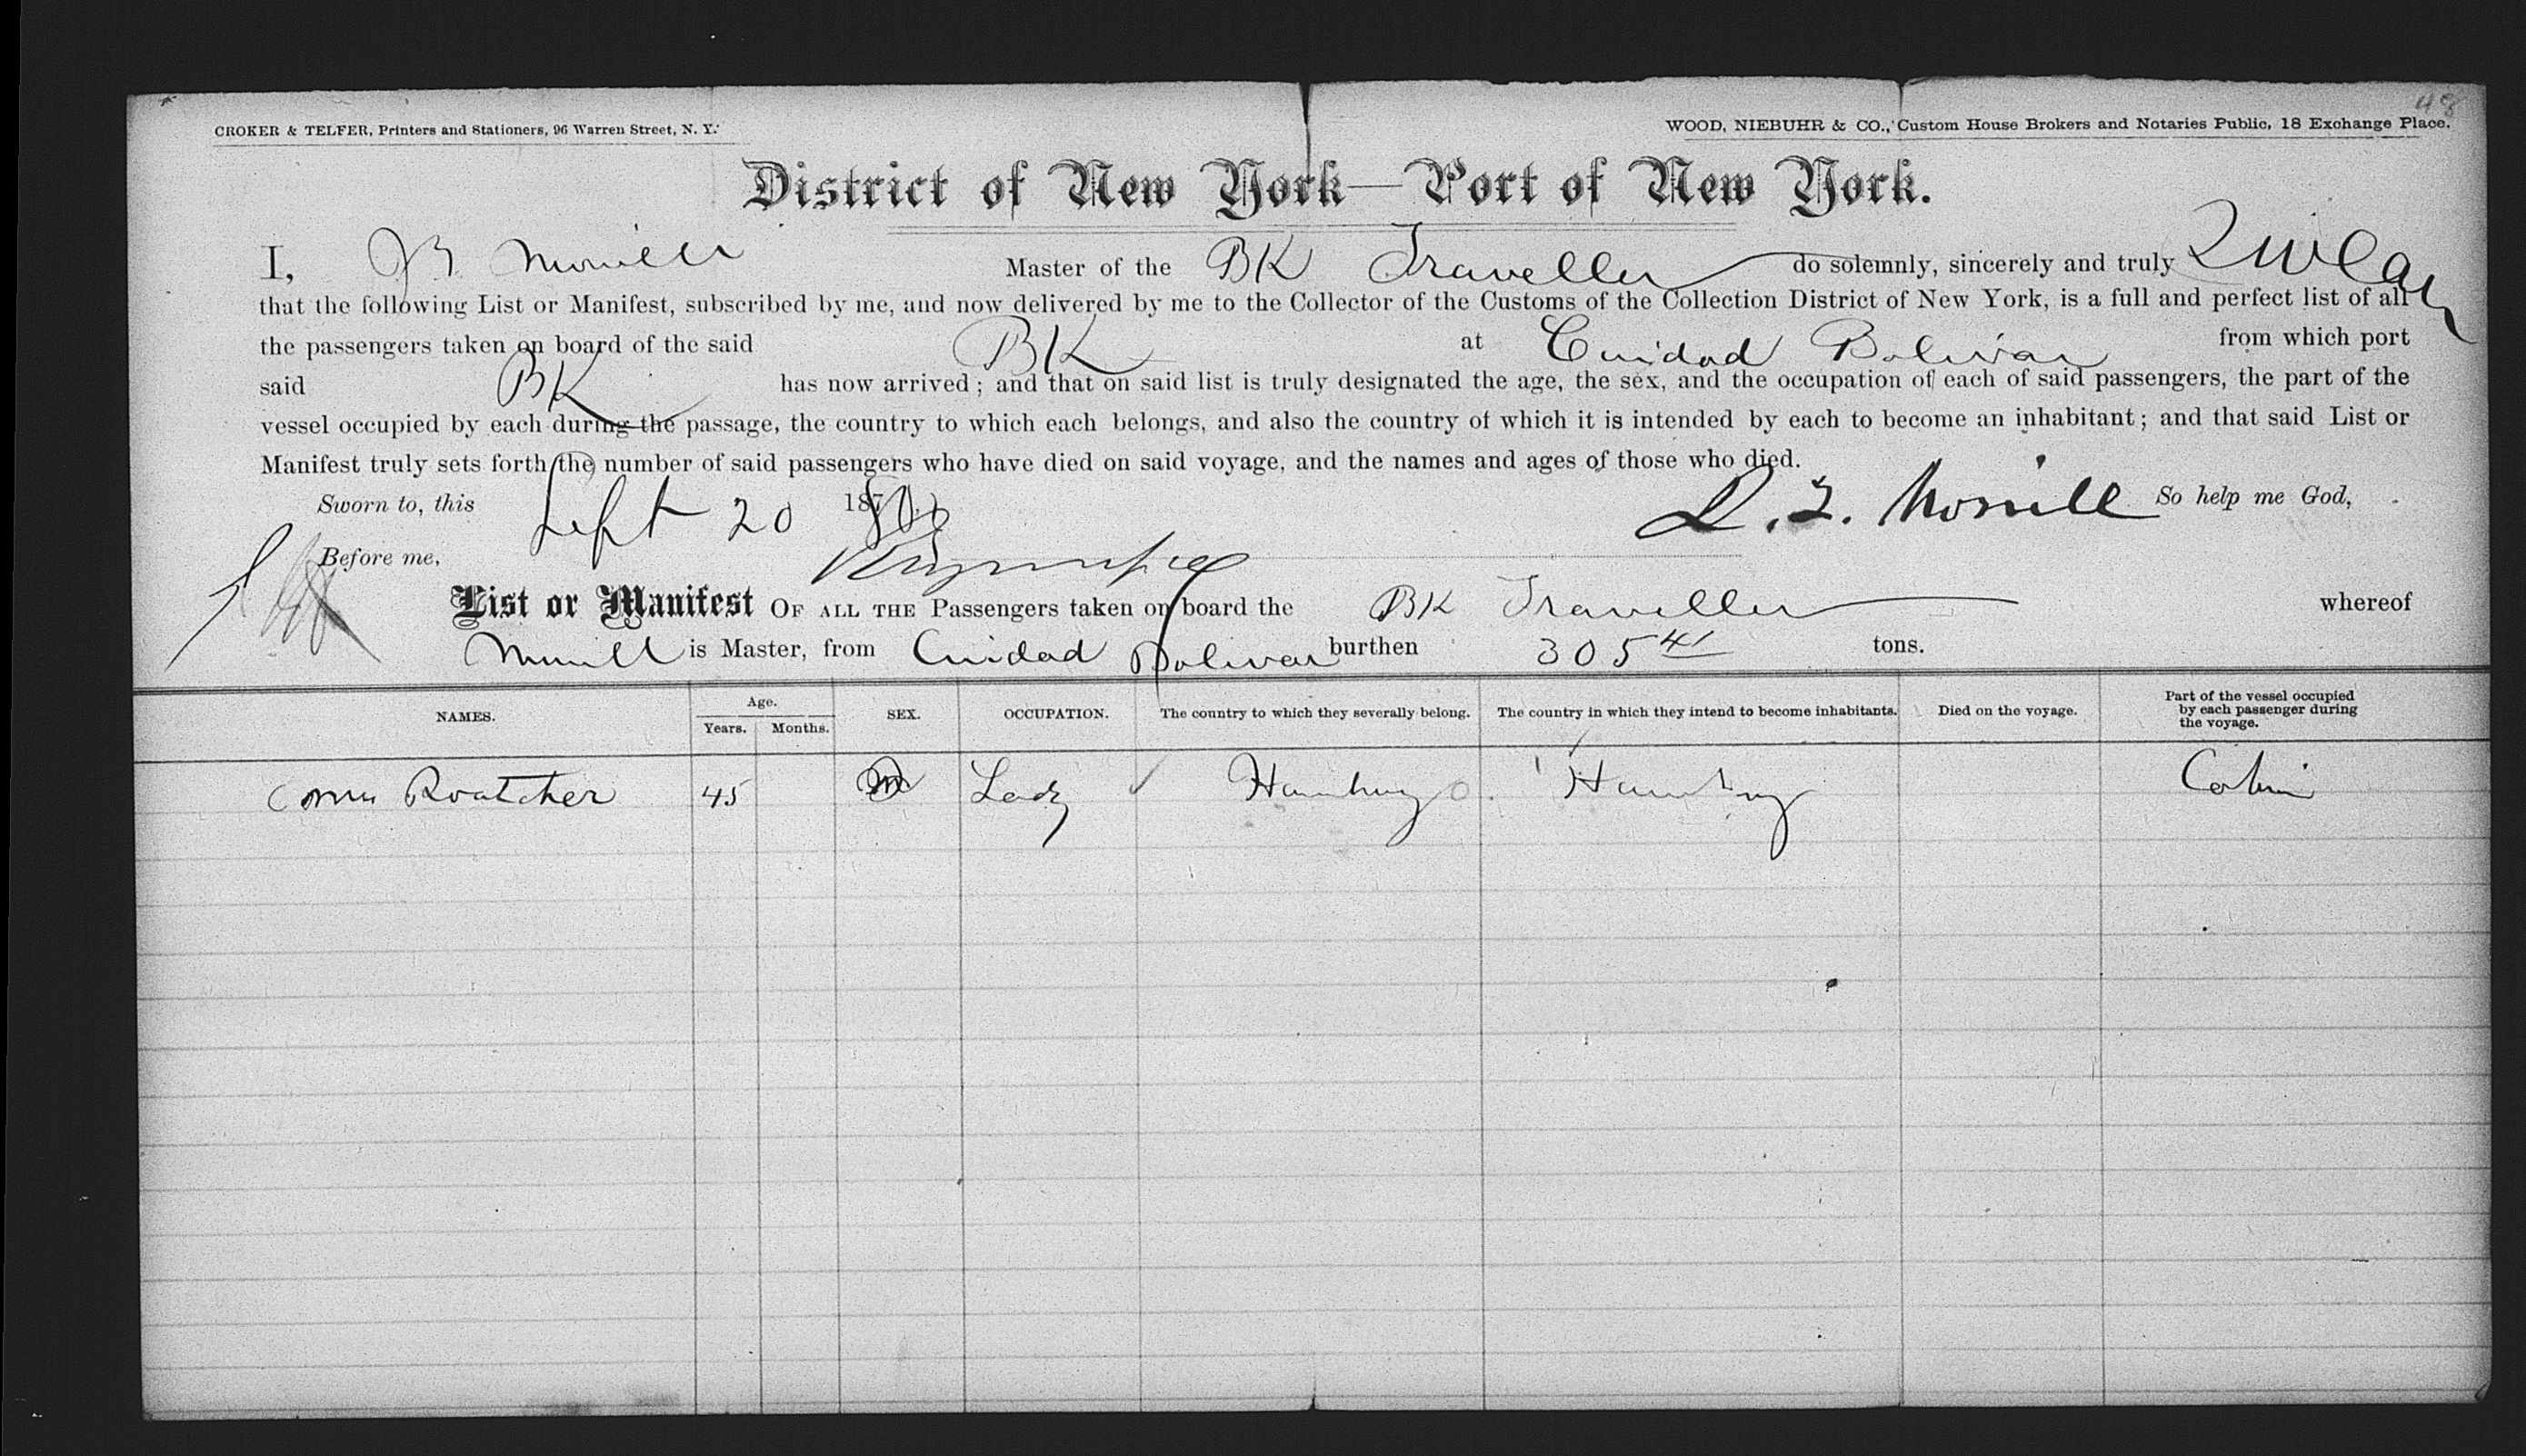 48
CROKER & TELFER, Printers and Stationers, 96 Warren Street, N. Y.
WOOD, NIEBUHR & CO., Custom House Brokers and Notaries Public, 18 Exchange Place.
District of New York—Port of New York.
I, Morrill Master of the BK Traveller do solemnly, sincerely and truly swear
that the following List or Manifest, subscribed by me, and now delivered by me to the Collector of the Customs of the Collection District of New York, is a full and perfect list of all
the passengers taken on board of the said BK at Cuidad Bolivar from which port
said BK has now arrived; and that on said list is truly designated the age, the sex, and the occupation of each of said passengers, the part of the
vessel occupied by each during the passage, the country to which each belongs, and also the country of which it is intended by each to become an inhabitant; and that said List or
Manifest truly sets forth the number of said passengers who have died on said voyage, and the names and ages of those who died.
Sworn to, this Sept 20 1880 Morrill So help me God,
Before me,
List or Manifest OF ALL THE Passengers taken on board the BK Traveller whereof
Morrill is Master, from Cuidad Bolivar burthen 305 41 tons.
NAMES. Age. Years. Months. SEX. OCCUPATION. The country to which they severally belong. The country in which they intend to become inhabitants. Died on the voyage. Part of the vessel occupied by each passenger during the voyage.
Roatcher 45 Lady Hamburg Hamburg Cabin